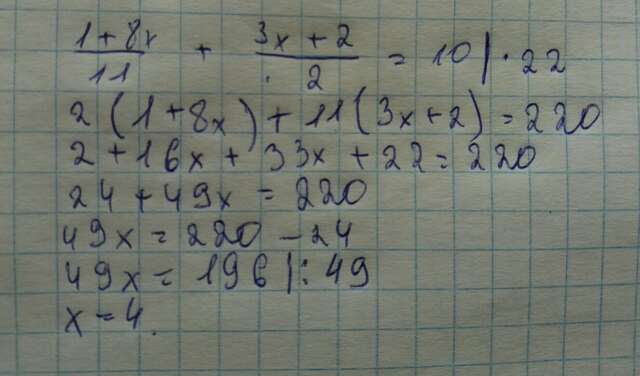 (1+8x)/11 + (3x+2)/2 = 10 |·22
2(1+8x)+11(3x+2)=220
2+16x+33x+22=220
24+49x=220
49x=220-24
49x=196|:49
x=4.